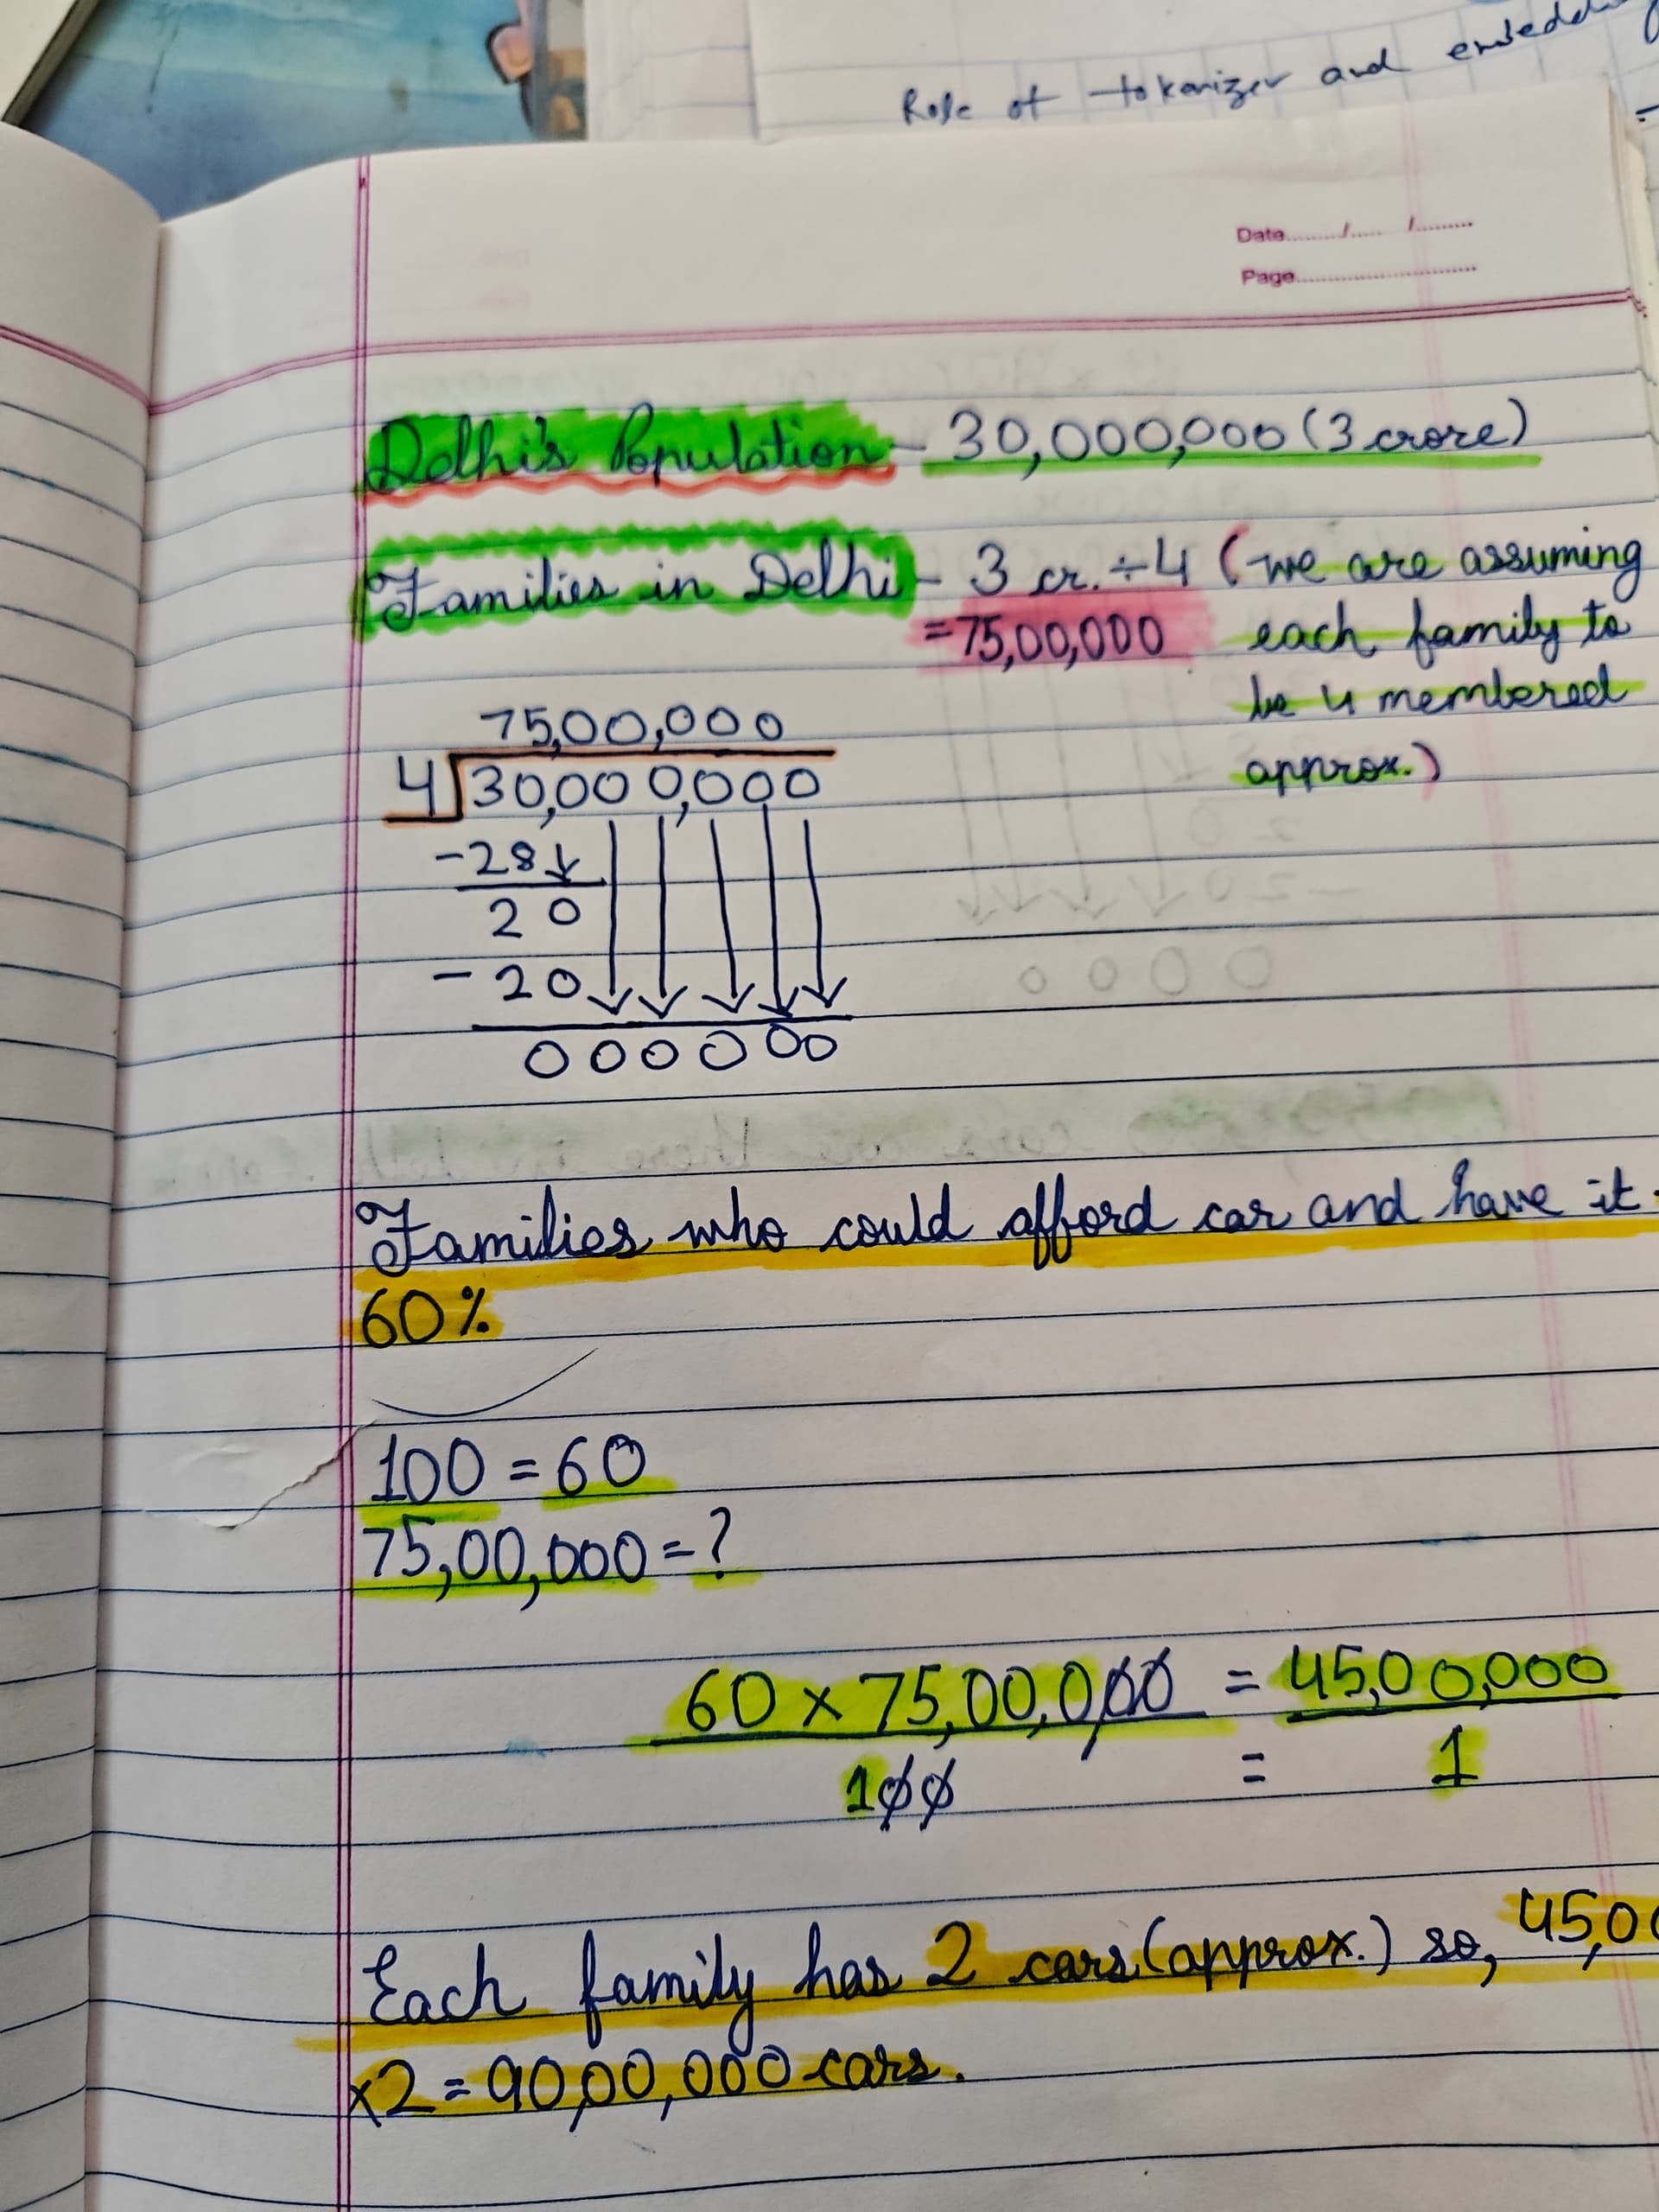 Role of tokenizer and
Date......../...... /.........
Page..............................
Delhi's Population - 30,000,000 (3 crore)
Families in Delhi - 3 cr. ÷ 4 (we are assuming
= 75,00,000 each family to
be 4 membered
approx.)
75,00,000
4 30,000,000
- 28
20
- 20
000000
Families who could afford car and have it
60%
100 = 60
75,00,000 = ?
60 x 75,00,000 = 45,00,000
100 = 1
Each family has 2 cars (approx.) so, 45,0
x2 = 90,00,000 cars.